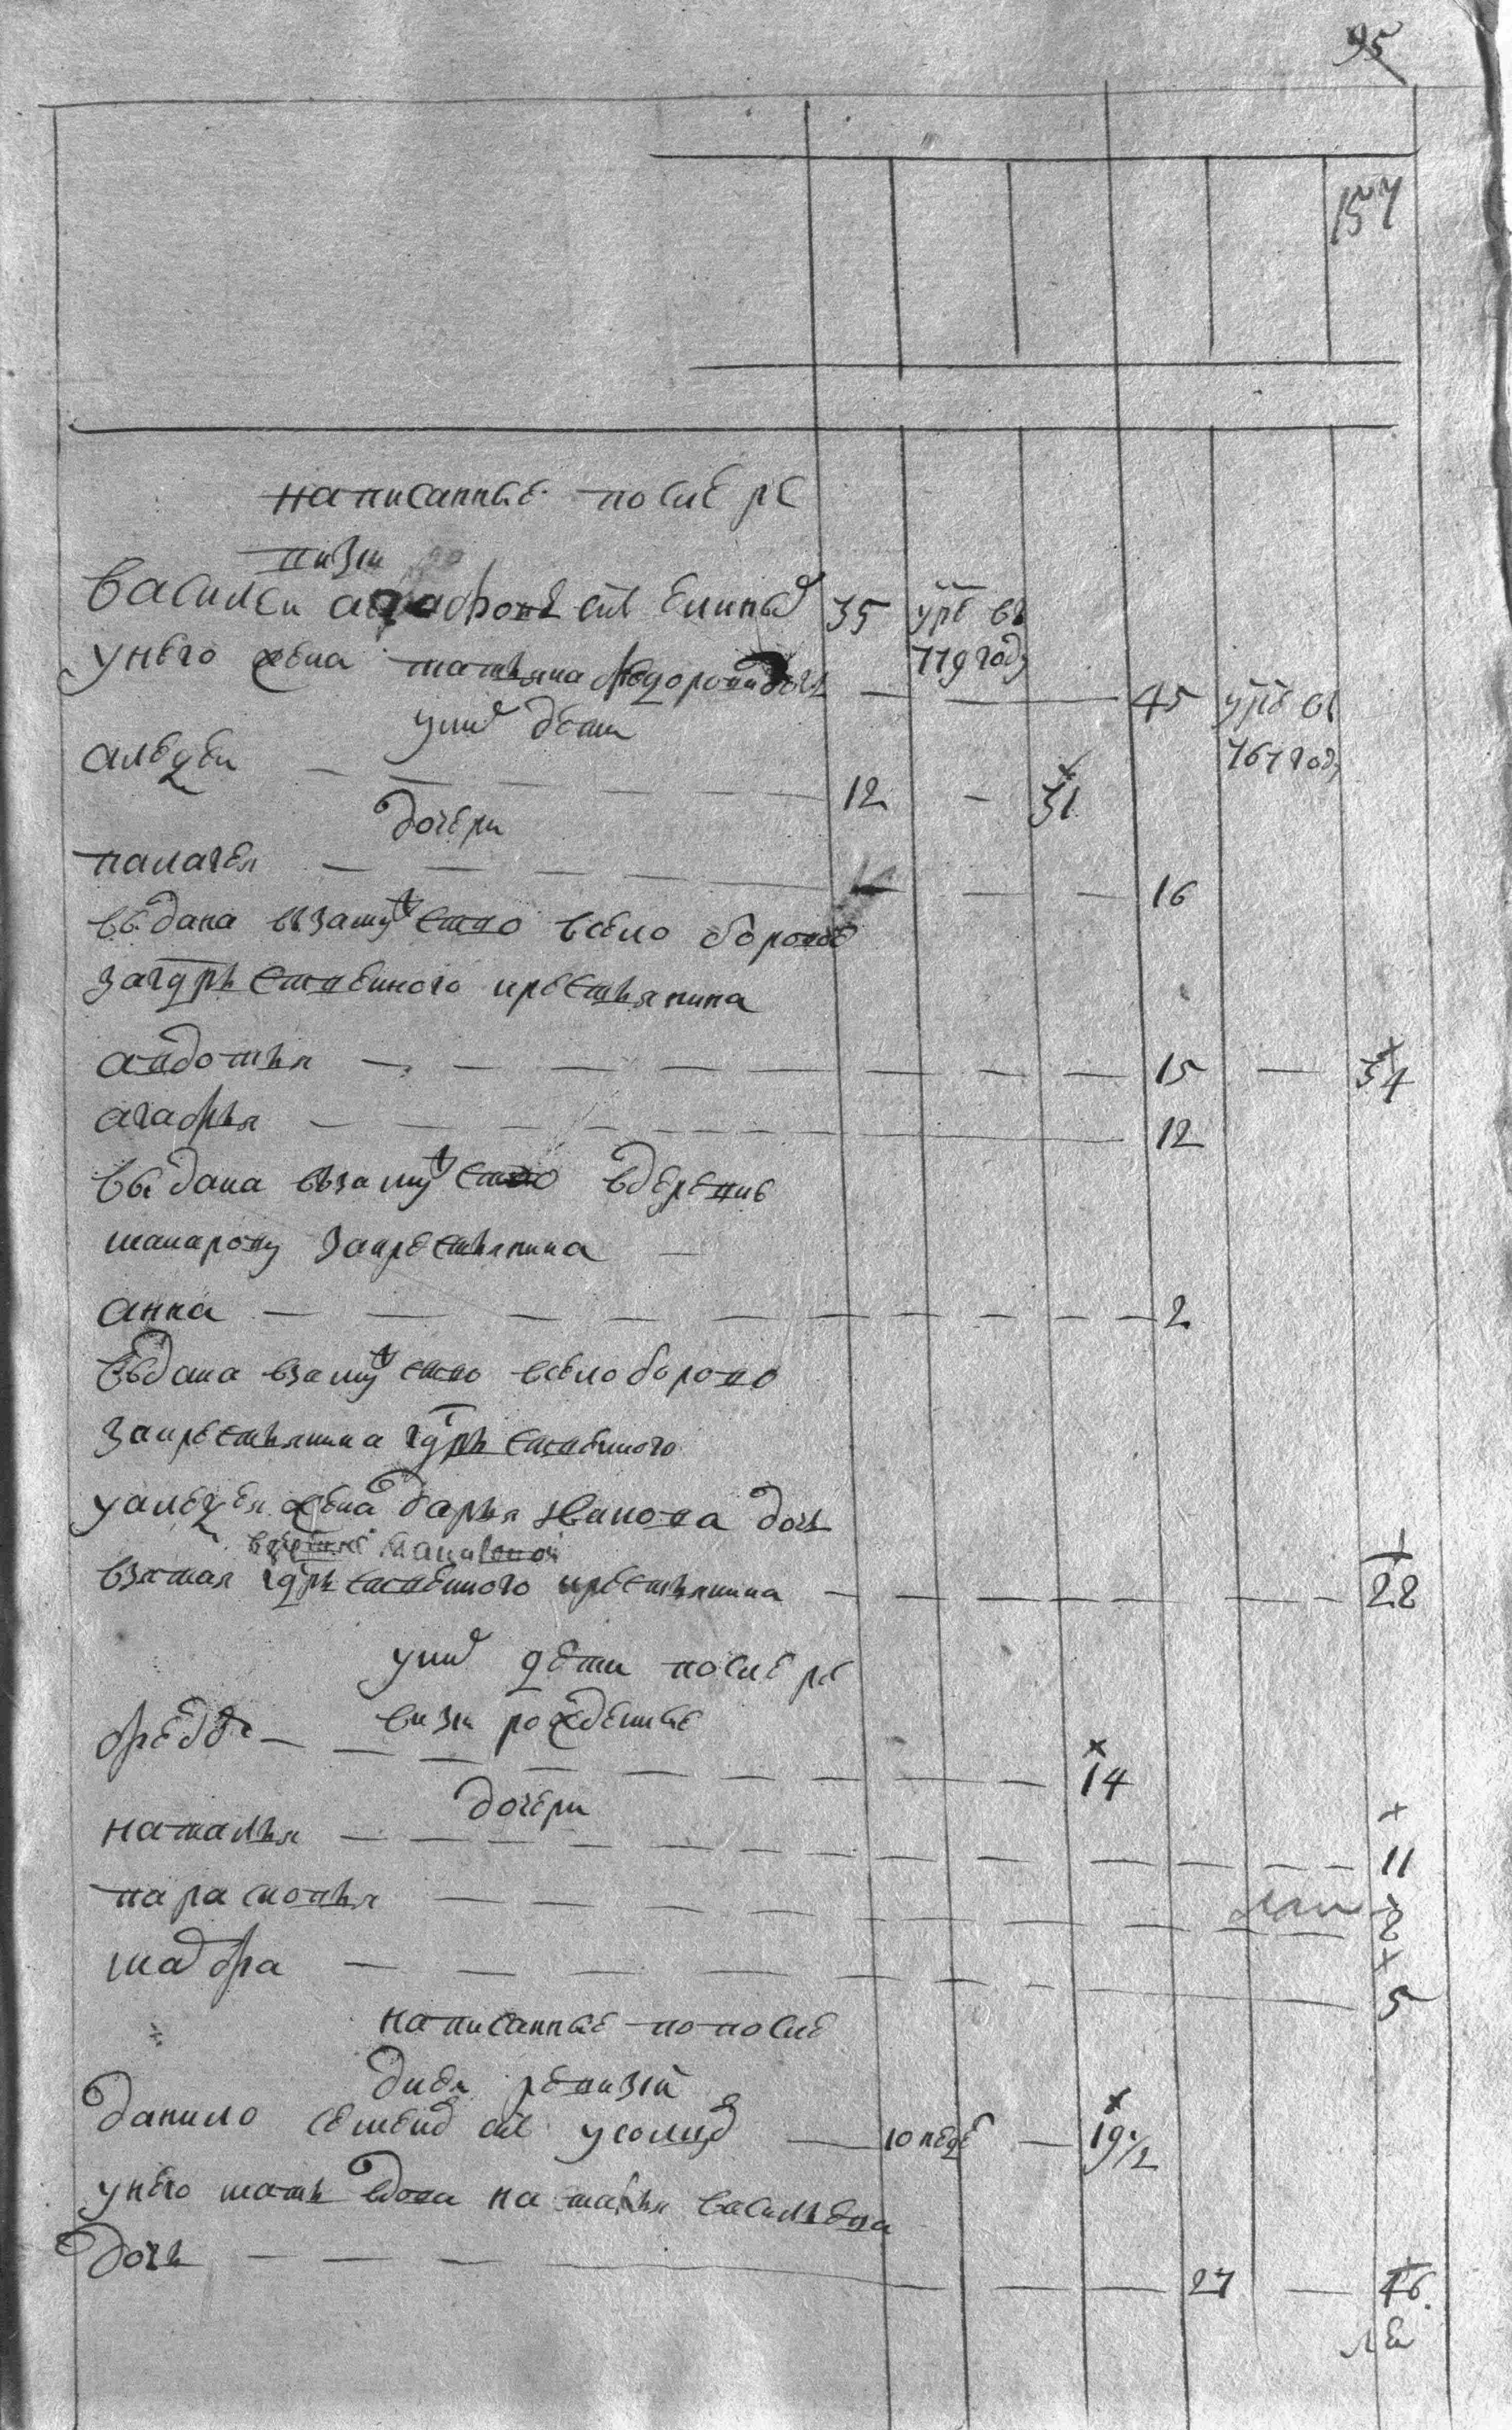 95
157
написанные после ре
визи
василеи агафоновъ снъ 35 умре въ
779 году
унего жена татьяна федорова дочь — — 45 умре въ
767 году
унихъ дети
алеѯеи — — — — 12 — 31
дочери
палагея — — — — — — — 16
выдана взамужество всело борово
загдрьственного крестьянина
авдотья — — — — — — — — 15 — 34
агафья — — — — — — — 12
выдана взамужество вдеревню
макарову закрестьянина —
анна — — — — — — — — — 2
выдана взамужество всело борово
закрестьянина гдрьственного
уалеѯея жена дарья иванова дочь
вдеревне
взятая гдрьственного крестьянина — — — — — — — 22
унихъ дети после ре
визи рожденые
федоръ — — — — — — — — 14
дочери
наталья — — — — — — — — — — — 11
парасковья — — — — — — — — — 8
мавра — — — — — — — — 5
написанные попосле
днеи ревизіи
данило семеновъ снъ — 10 неде — 19 1/2
унего мать вдова наталья васильева
дочь — — — — — — 27 — 46
ле